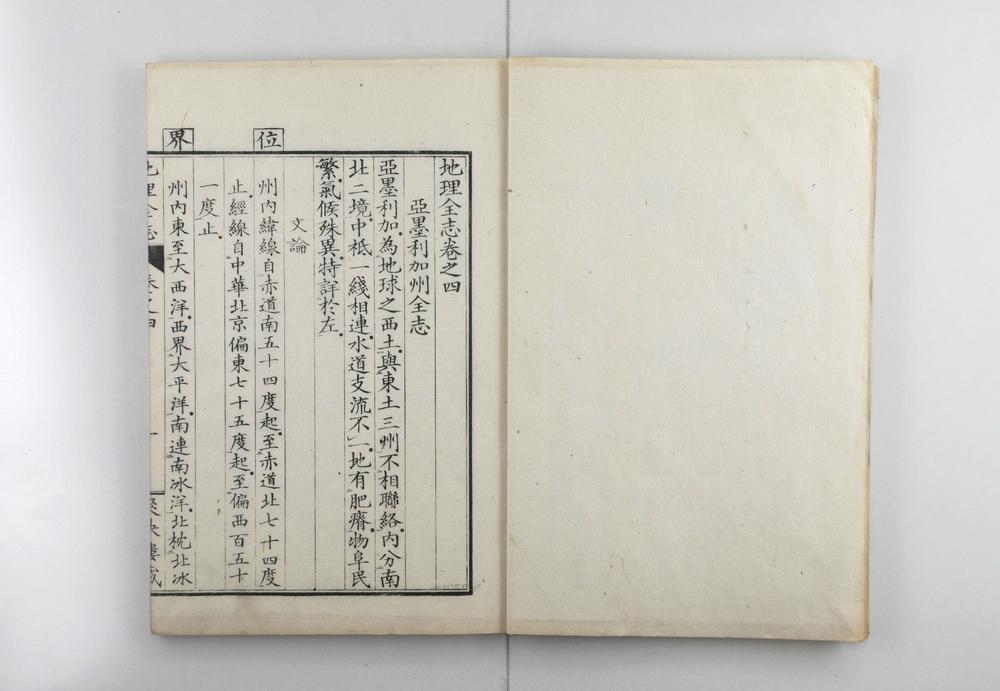 地理全志卷之四
亞墨利加州全志
亞墨利加為地球之西土與東土三州不相聯絡內分南
北二境中祗一綫相連水道支流不一地有肥瘠物阜民
繁氣候殊異特詳於左
文論
位
州內緯線自赤道南五十四度起至赤道北七十四度
止經線自中華北京偏東七十五度起至偏西百五十
一度止
界
州內東至大西洋西界大平洋南連南冰洋北枕北冰
地理全志 卷之四 一